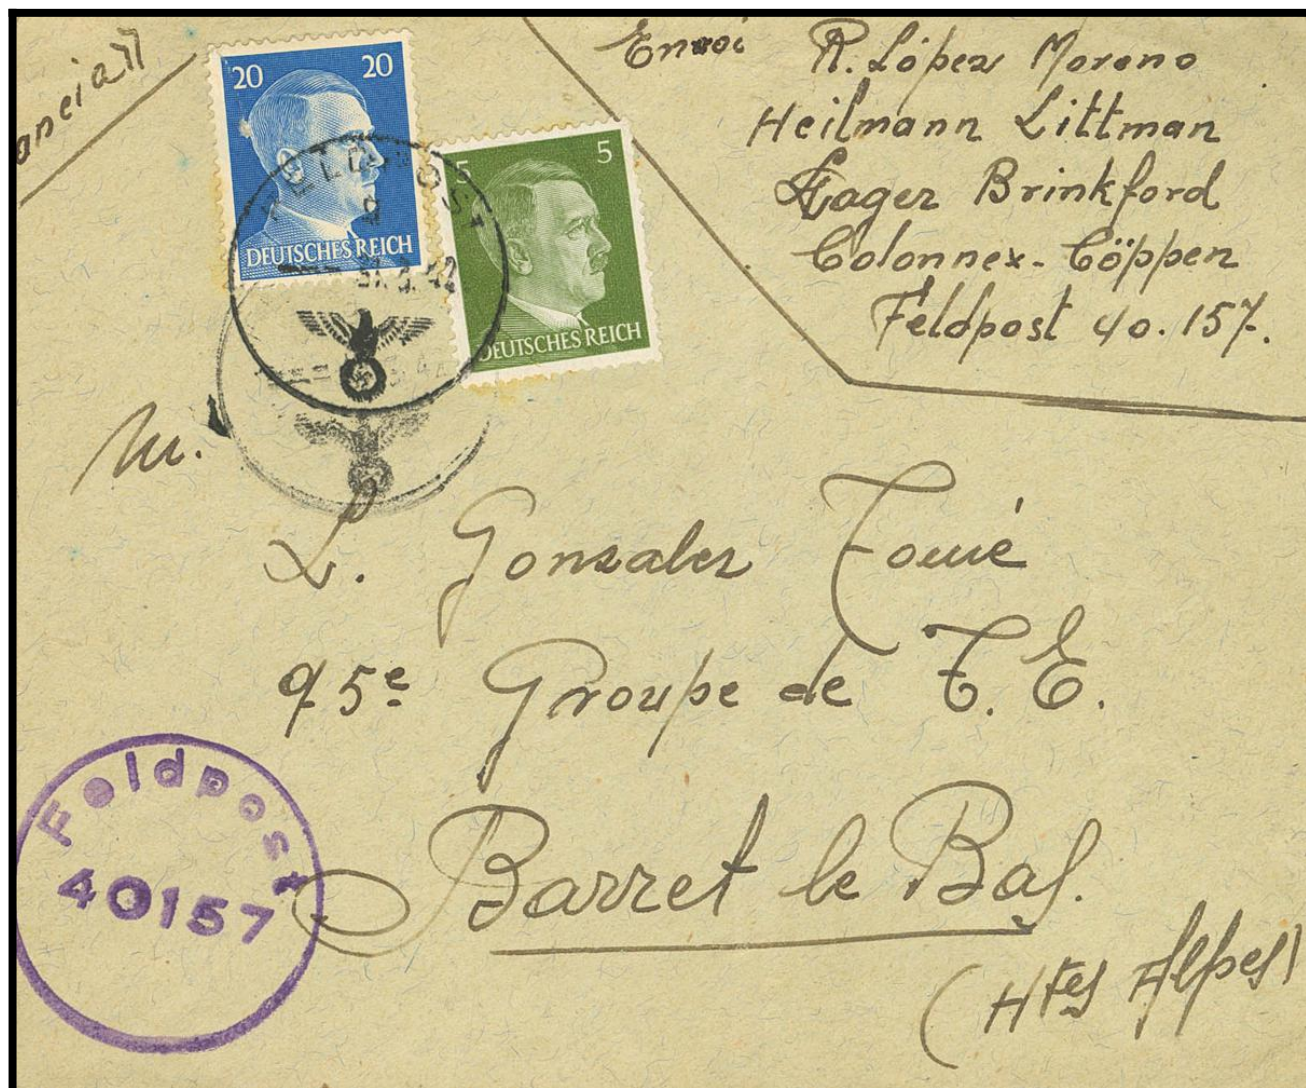 20 20
DEUTSCHES REICH
5 5
DEUTSCHES REICH
FELDPOST
.3.42
Envoi R. López Moreno
Heilmann Littman
Lager Brinkford
Colonnex - Cöppen
Feldpost 40.157.
M.
L. Gonzalez
95e Groupe de T. E.
Barret le Bas.
(Htes Alpes)
Feldpost
40157